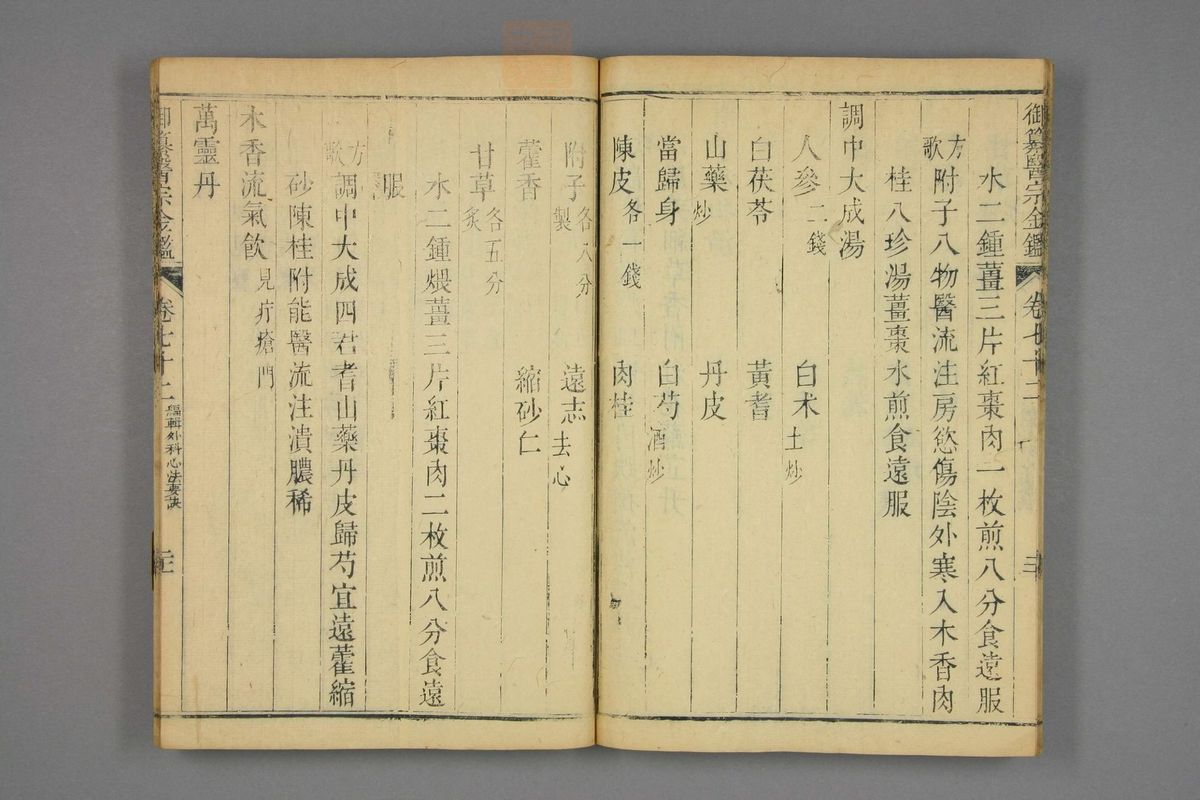 御纂醫宗金鑑 卷七十二 三
水二鍾薑三片紅棗肉二枚煎八分食遠服
方歌 附子八物醫流注房慾傷陰外寒入木香肉
桂八珍湯薑棗水煎食遠服
調中大成湯
人參二錢 白朮土炒
白茯苓 黃耆
山藥炒 丹皮
當歸身 白芍酒炒
陳皮各一錢 肉桂
附子製各八分 遠志去心
藿香 縮砂仁
甘草炙各五分
水二鍾煨薑三片紅棗肉二枚煎八分食遠
服
方歌 調中大成四君耆山藥丹皮歸芍宜遠藿縮
砂陳桂附能醫流注潰膿稀
木香流氣飲見疔瘡門
萬靈丹
御纂醫宗金鑑 卷七十二 編輯外科心法要訣